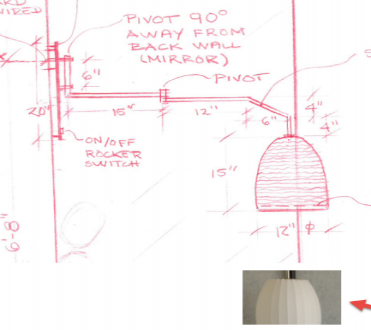 WIRED
PIVOT 90°
AWAY FROM
BACK WALL
(MIRROR)
PIVOT
6"
20"
15"
12"
6"
4"
4"
ON/OFF
ROCKER
SWITCH
15"
12" φ
6'-8"